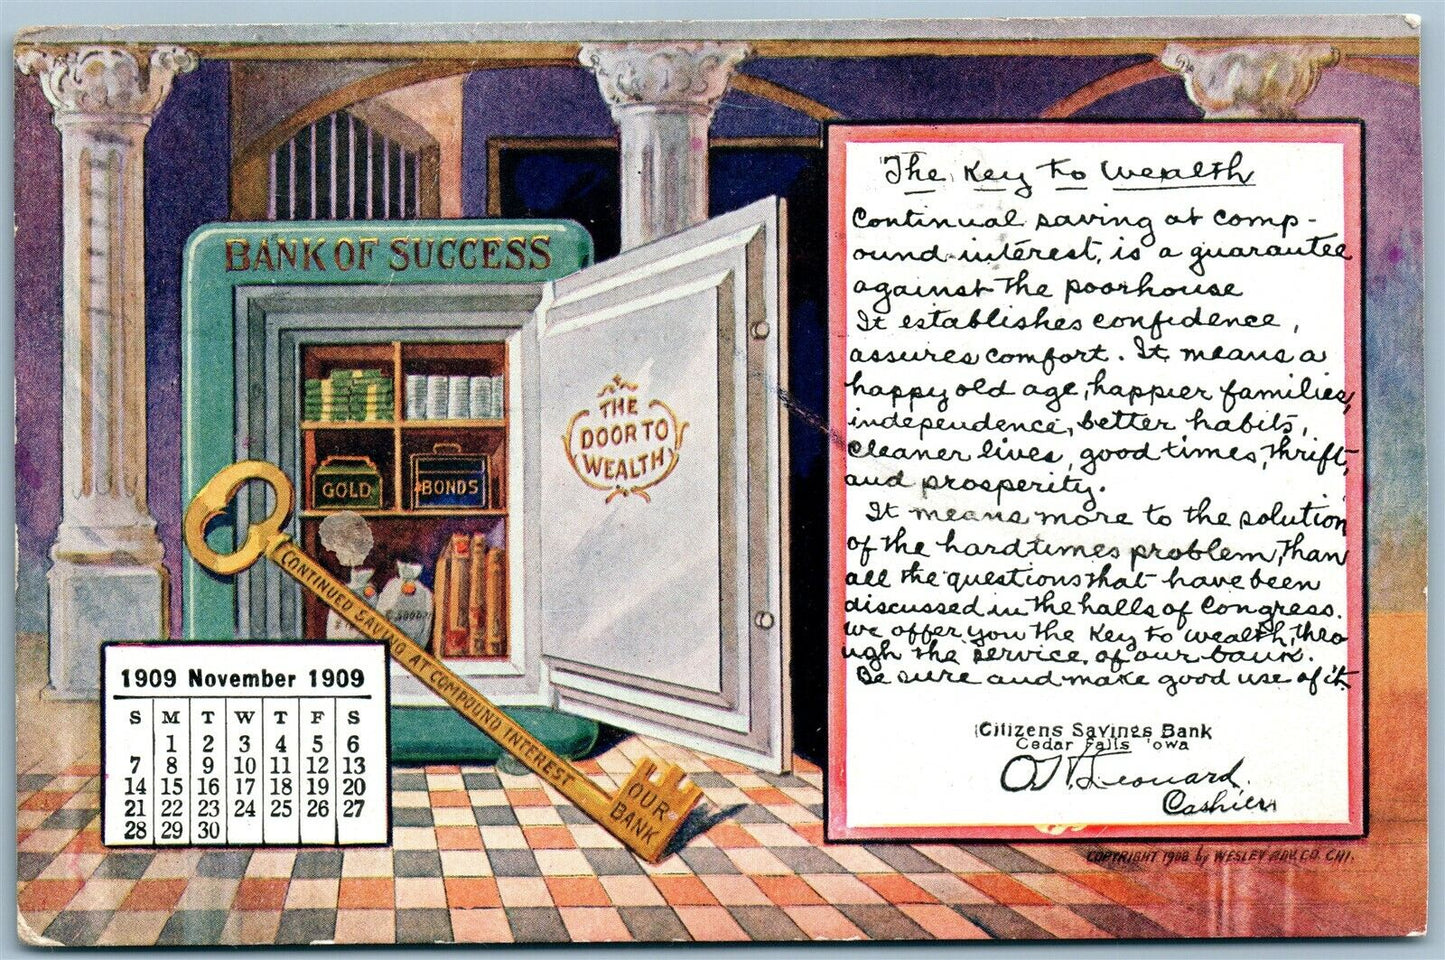 BANK OF SUCCESS
THE
DOOR TO
WEALTH
GOLD
BONDS
CONTINUED SAVING AT COMPOUND INTEREST
OUR
BANK
1909 November 1909
S M T W T F S
1 2 3 4 5 6
7 8 9 10 11 12 13
14 15 16 17 18 19 20
21 22 23 24 25 26 27
28 29 30
The Key to Wealth
Continual saving at comp-
ound interest, is a guarautee
against the poorhouse
It establishes confidence,
assures comfort. It means a
happy old age, happier families,
independence, better habits,
cleaner lives, good times, thrift,
and prosperity.
It means more to the solution
of the hard times problem, than
all the questions that have been
discussed in the halls of Congress.
We offer you the Key to wealth, thro
ugh the service of our bank.
Be sure and make good use of it
Citizens Savings Bank
Cedar Falls Iowa
Leonard.
Cashier
COPYRIGHT 1908 by WESLEY ADV. CO. CHI.